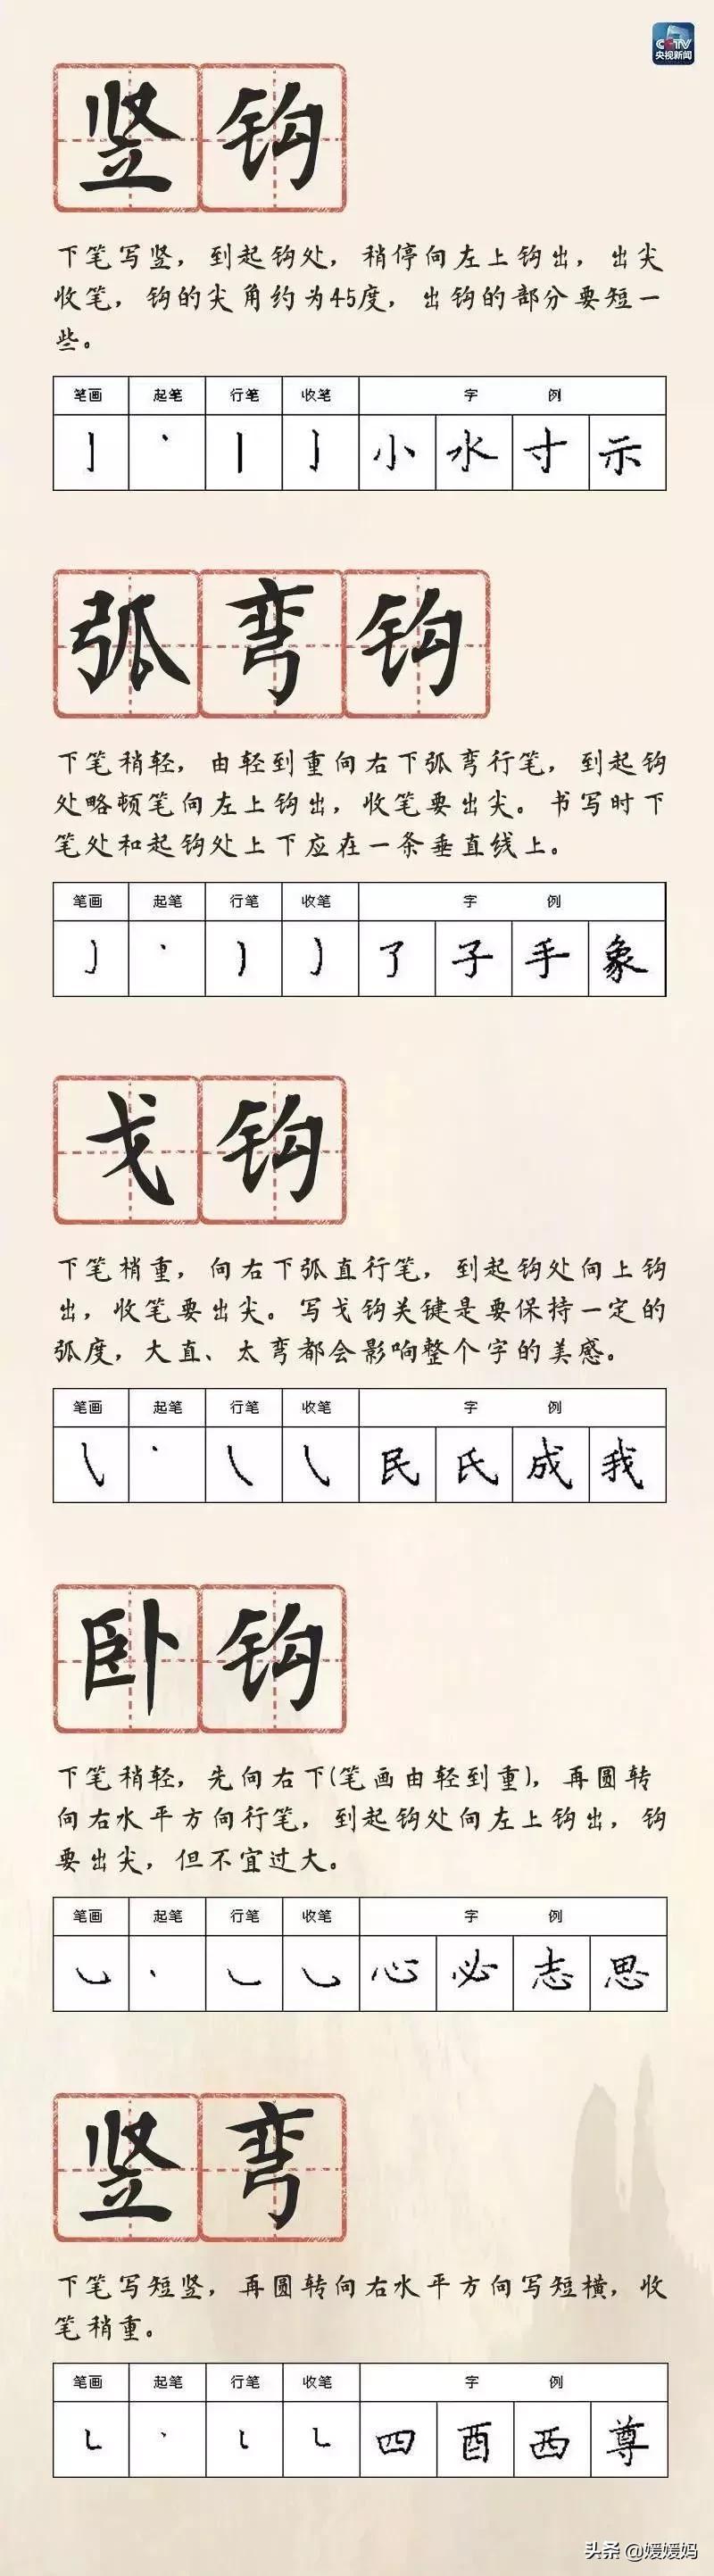 CCTV
央视新闻
竖钩
下笔写竖，到起钩处，稍停向左上钩出，出尖
收笔，钩的尖角约为45度，出钩的部分要短一
些。
笔画 起笔 行笔 收笔 字 例
亅 丶 丨 亅 小 水 寸 示
弧弯钩
下笔稍轻，由轻到重向右下弧弯行笔，到起钩
处略顿笔向左上钩出，收笔要出尖。书写时下
笔处和起钩处上下应在一条垂直线上。
笔画 起笔 行笔 收笔 字 例
了 子 手 象
戈钩
下笔稍重，向右下弧直行笔，到起钩处向上钩
出，收笔要出尖。写戈钩关键是要保持一定的
弧度，大直、太弯都会影响整个字的美感。
笔画 起笔 行笔 收笔 字 例
民 氏 成 我
卧钩
下笔稍轻，先向右下(笔画由轻到重)，再圆转
向右水平方向行笔，到起钩处向左上钩出，钩
要出尖，但不宜过大。
笔画 起笔 行笔 收笔 字 例
心 必 志 思
竖弯
下笔写短竖，再圆转向右水平方向写短横，收
笔稍重。
笔画 起笔 行笔 收笔 字 例
四 酉 西 尊
头条 @媛媛妈